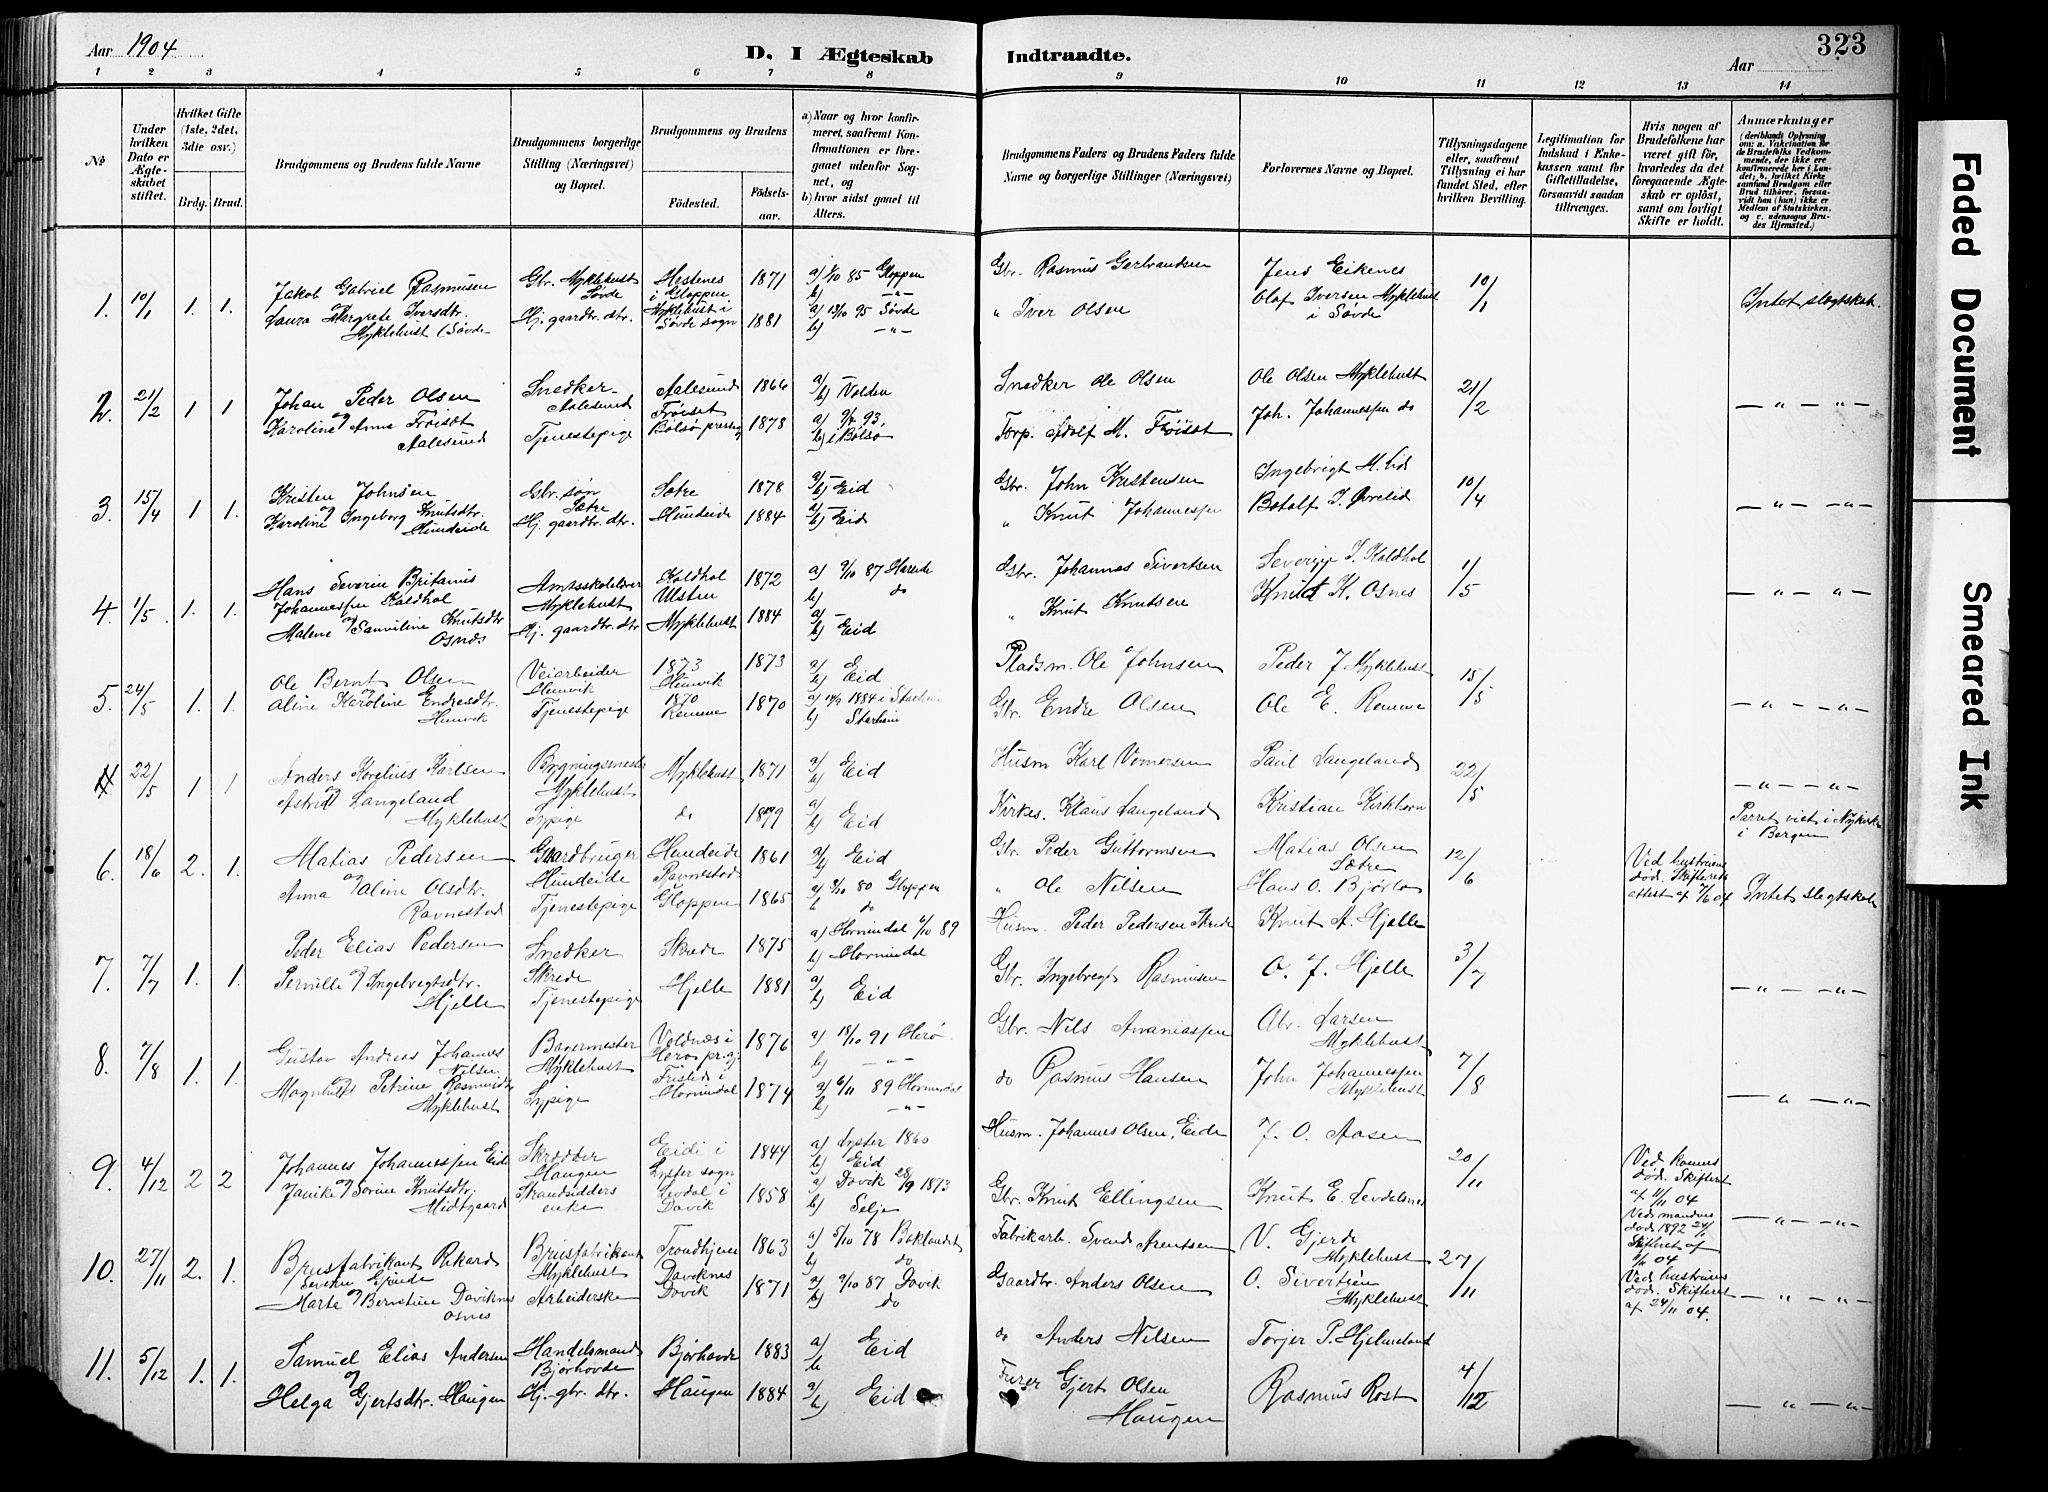 Aar 1904
D. I Ægteskab Indtraadte.
Aar
323
1 2 3 4 5 6 7 8 9 10 11 12 13 14
No
Under hvilken Dato er Ægteskabet stiftet.
Hvilket Gifte (1ste, 2det, 3die osv.)
Brdg. Brud.
Brudgommens og Brudens fulde Navne
Brudgommens borgerlige Stilling (Næringsvei) og Bopæl.
Brudgommens og Brudens
Födested.
Födselsaar.
a) Naar og hvor konfirmeret, saafremt Konfirmationen er foregaaet udenfor Sognet, og
b) hvor sidst gaaet til Alters.
Brudgommens Faders og Brudens Faders fulde Navne og borgerlige Stillinger (Næringsvei)
Forlovernes Navne og Bopæl.
Tillysningsdagene eller, saafremt Tillysning ei har fundet Sted, efter hvilken Bevilling.
Legitimation for Indskud i Enkekassen samt for Giftetilladelse, forsaavidt saadan tiltrænges.
Hvis nogen af Brudefolkene har været gift för, hvorledes da det foregaaende Ægteskab er oplöst, samt om lovligt Skifte er holdt.
Anmærkninger
(deriblandt Oplysning om: a. Vakcination for de Brudefolks Vedkommende, der ikke ere konfirmerede her i Landet; b. hvilket Kirkesamfund Brudgom eller Brud tilhörer, forsaavidt han (hun) ikke er Medlem af Statskirken, og c. udensogns Brudes Hjemsted.)
1. 10/1 1. 1.
Jakob Gabriel Rasmusen
og
Laura Margrete Iversdtr.
Myklebust (Søvde
Gbr. Myklebust
Søvde
Hj. gaardbr. dtr.
Hestenes
i Gloppen
Myklebust i
Søvde sogn
1871
1881
a) 1/10 85 Gloppen
b) — " —
a) 13/10 95 Søvde
b) — " —
Gbr. Rasmus Gerbrandsen
" Iver Olsen
Jens Eikenes
Olaf Iversen Myklebust
i Søvde
10/1
Intet slegtskab.
2. 21/2 1 1
Johan Peder Olsen
og
Karoline Anna Frøiset
Aalesund
Snedker
Aalesund
Tjenestepige
Aalesund
Frøiset
1866
1878
a)
b) Volden
a) 93,
b) i Bolsø
Snedker Ole Olsen
Torp. Adolf M. Frøiset
Ole Olsen Myklebust
Joh. Johannessen do
21/2
— " — " —
3. 15/4 1 1.
Kristen Johnsen
og
Karoline Ingeborg Knutsdtr.
Hundeide
Gbr. søn
Sætre
Hj. gaardbr. dtr.
Sætre
Hundeide
1878
1884
a) —
b) Eid
a) —
b) Eid
Gbr. John Kristensen
" Knut Johannessen
Ingebrigt M. Lid
Botolf I. Øvrelid
10/4
— " — " —
4. 1/5 1. 1.
Hans Severin Britanus
Johannessen Koldhol
og
Malene Samuline Knutsdtr
Osnes
Amtsskolelærer
Myklebust
Hj. gaardbr. dtr
Koldhol
Ulsten
Myklebust
1872
1884
a) 9/10 87 Hareide
b) do
a) —
b) Eid
Gbr. Johannes Sivertsen
" Knut Knutsen
Koldhol
Knut K. Osnes
1/5
— " — " —
5. 24/5 1. 1.
Ole Bernt Olsen
og
Aline Karoline Endresdtr.
Hunvik
Veiarbeider
Hunvik
Tjenestepige
1873
Hunvik
1870
Remme
1873
1870
a)
b) Eid
a) 1884 i Starheim
b) Starheim
Pladsm. Ole Johnsen
Gbr. Endre Olsen
Peder J Myklebust
Ole E. Remme
15/5
— " — " —
22/5 1 1
Anders Kornelius Karlsen
og
Astrid Langeland
Myklebust
Bygningsmester
Myklebust
Sypige
Myklebust
do
1871
1879
a)
b) Eid
a)
b) Eid
Husm Karl
Kirkes. Klaus Langeland
Paul Langeland
Kristian Kirkhorn
22/5
— " — " —
Parret viet i Nykirke
i Bergen
6. 18/6 2. 1.
Matias Pedersen
og
Anna Oline Olsdtr.
Ravnestad
Gaardbruger
Hundeide
Tjenestepige
Hundeide
Ravnestad
Gloppen
1861
1865
a)
b) Eid
a) 3/10 80 Gloppen
b do
Gbr. Peder Guttormsen
" Ole Nilsen
Matias Olsen
Sætre
Hans O. Bjørlo
12/6
Ved hustruens
død. Skifteret
attest af 7/6 04
Intet slegtskab
7. 7/7 1. 1.
Peder Elias Pedersen
og
Pernille Ingebregtsdtr.
Hjelle
Snedker
Skrede
Tjenestepige
Skrede
Hjelle
1875
1881
a) Hornindal 6/10 89
b) Hornindal
a)
b) Eid
Husm. Peder Pedersen Skrede
Gbr. Ingebregt Rasmusen
Knut A. Hjelle
O. J. Hjelle
3/7
— " — " —
8. 7/8 1. 1.
Gustav Andreas Johannes
Nilsen
og
Magnhild Petrine Rasmusdtr
Myklebust
Bagermester
Myklebust
Sypige
Voldnes i
Herø pr.gj.
Tristed i
Hornindal
1876
1874
a) 18/10 91 Herø
b) — " —
a) 6/11 89 Hornindal
b) — " —
Gbr. Nils Ananiassen
do Rasmus Hansen
Abr. Larsen
Myklebust
John Johannessen
Myklebust
7/8
— " — " —
9. 4/12 2 2
Johannes Johannessen Eide
og
Janike Serine Knutsdtr.
Midtgaard
Skrædder
Haugen
Strandsidders
enke
Eide i
Lyster sogn
Levdal i
Davik
1844
1858
a) Lyster 1860
b) Eid
a) Davik 28/9 1873
b) Selje
Husm. Johannes Olsen, Eide
Gbr. Knut Ellingsen
J. O. Aasen
Knut E. Levdalsnes
20/11
Ved konens
død. Skifteret
af 11/11 04
Ved mandens
død 1892
Skifteret af
04
— " — " —
10. 27/11 2. 1.
Brusfabrikant Rikard
Severin
og
Marte Bernstine Daviknes
Osnes
Brusfabrikant
Myklebust
Arbeiderske
Trondhjem
Daviknes
Davik
1863
1871
a) 5/10 78 Baklandet
b) do
a) 9/10 87 Davik
b) do
Fabrikarb. Svend Arentsen
Gaardbr. Anders Olsen
V. Gjerde
Myklebust
O. Sivertsen
Myklebust
27/11
Ved hustruens
død. Skifteret
af 24/11 04.
— " — " —
11. 5/12 1. 1.
Samuel Elias Andersen
og
Helga Gjertsdtr. Haugen
Handelsmand
Bjørhovde
Hj. gbr. dtr.
Bjørhovde
Haugen
1883
1884
a)
b Eid
a)
b) Eid
do Anders Nilsen
Furer Gjert Olsen
Haugen
Torjer P. Hjelmeland
Rasmus Rost
4/12
— " — " —
Faded Document
Smeared Ink